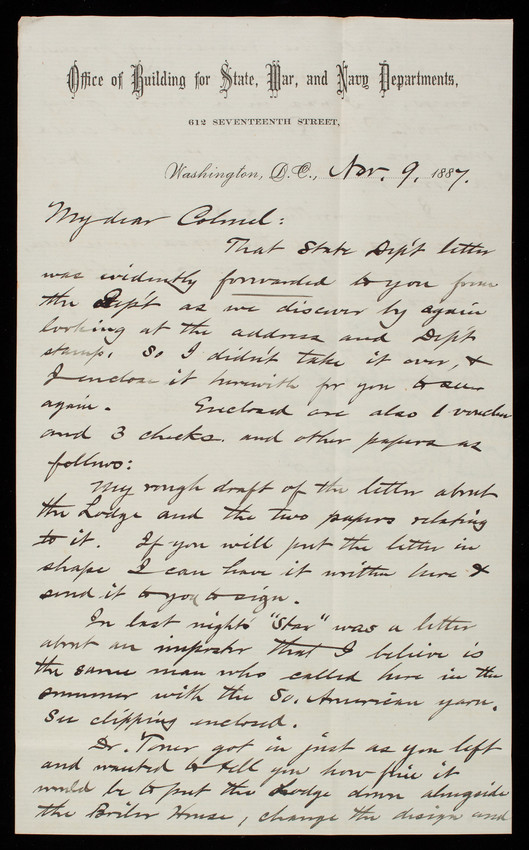 Office of Building for State, War, and Navy Departments,
612 SEVENTEENTH STREET,
Washington, D.C., Nov. 9, 1887.
My dear Colonel:
That State Dep't letter
was evidently forwarded to you from
the Dep't as we discover by again
looking at the address and Dep't
stamp. So I didn't take it over, &
I enclose it herewith for you to see
again. Enclosed are also 1 voucher
and 3 checks. and other papers as
follows:
My rough draft of the letter about
the Lodge and the two papers relating
to it. If you will put the letter in
shape I can have it written here &
send it to you to sign.
In last night's "Star" was a letter
about an imposter that I believe is
the same man who called here in the
summer with the So. American yarn.
See clipping enclosed.
Dr. Toner got in just as you left
and wanted to tell you how fine it
would be to put the Lodge down alongside
the Boiler House, change the design and